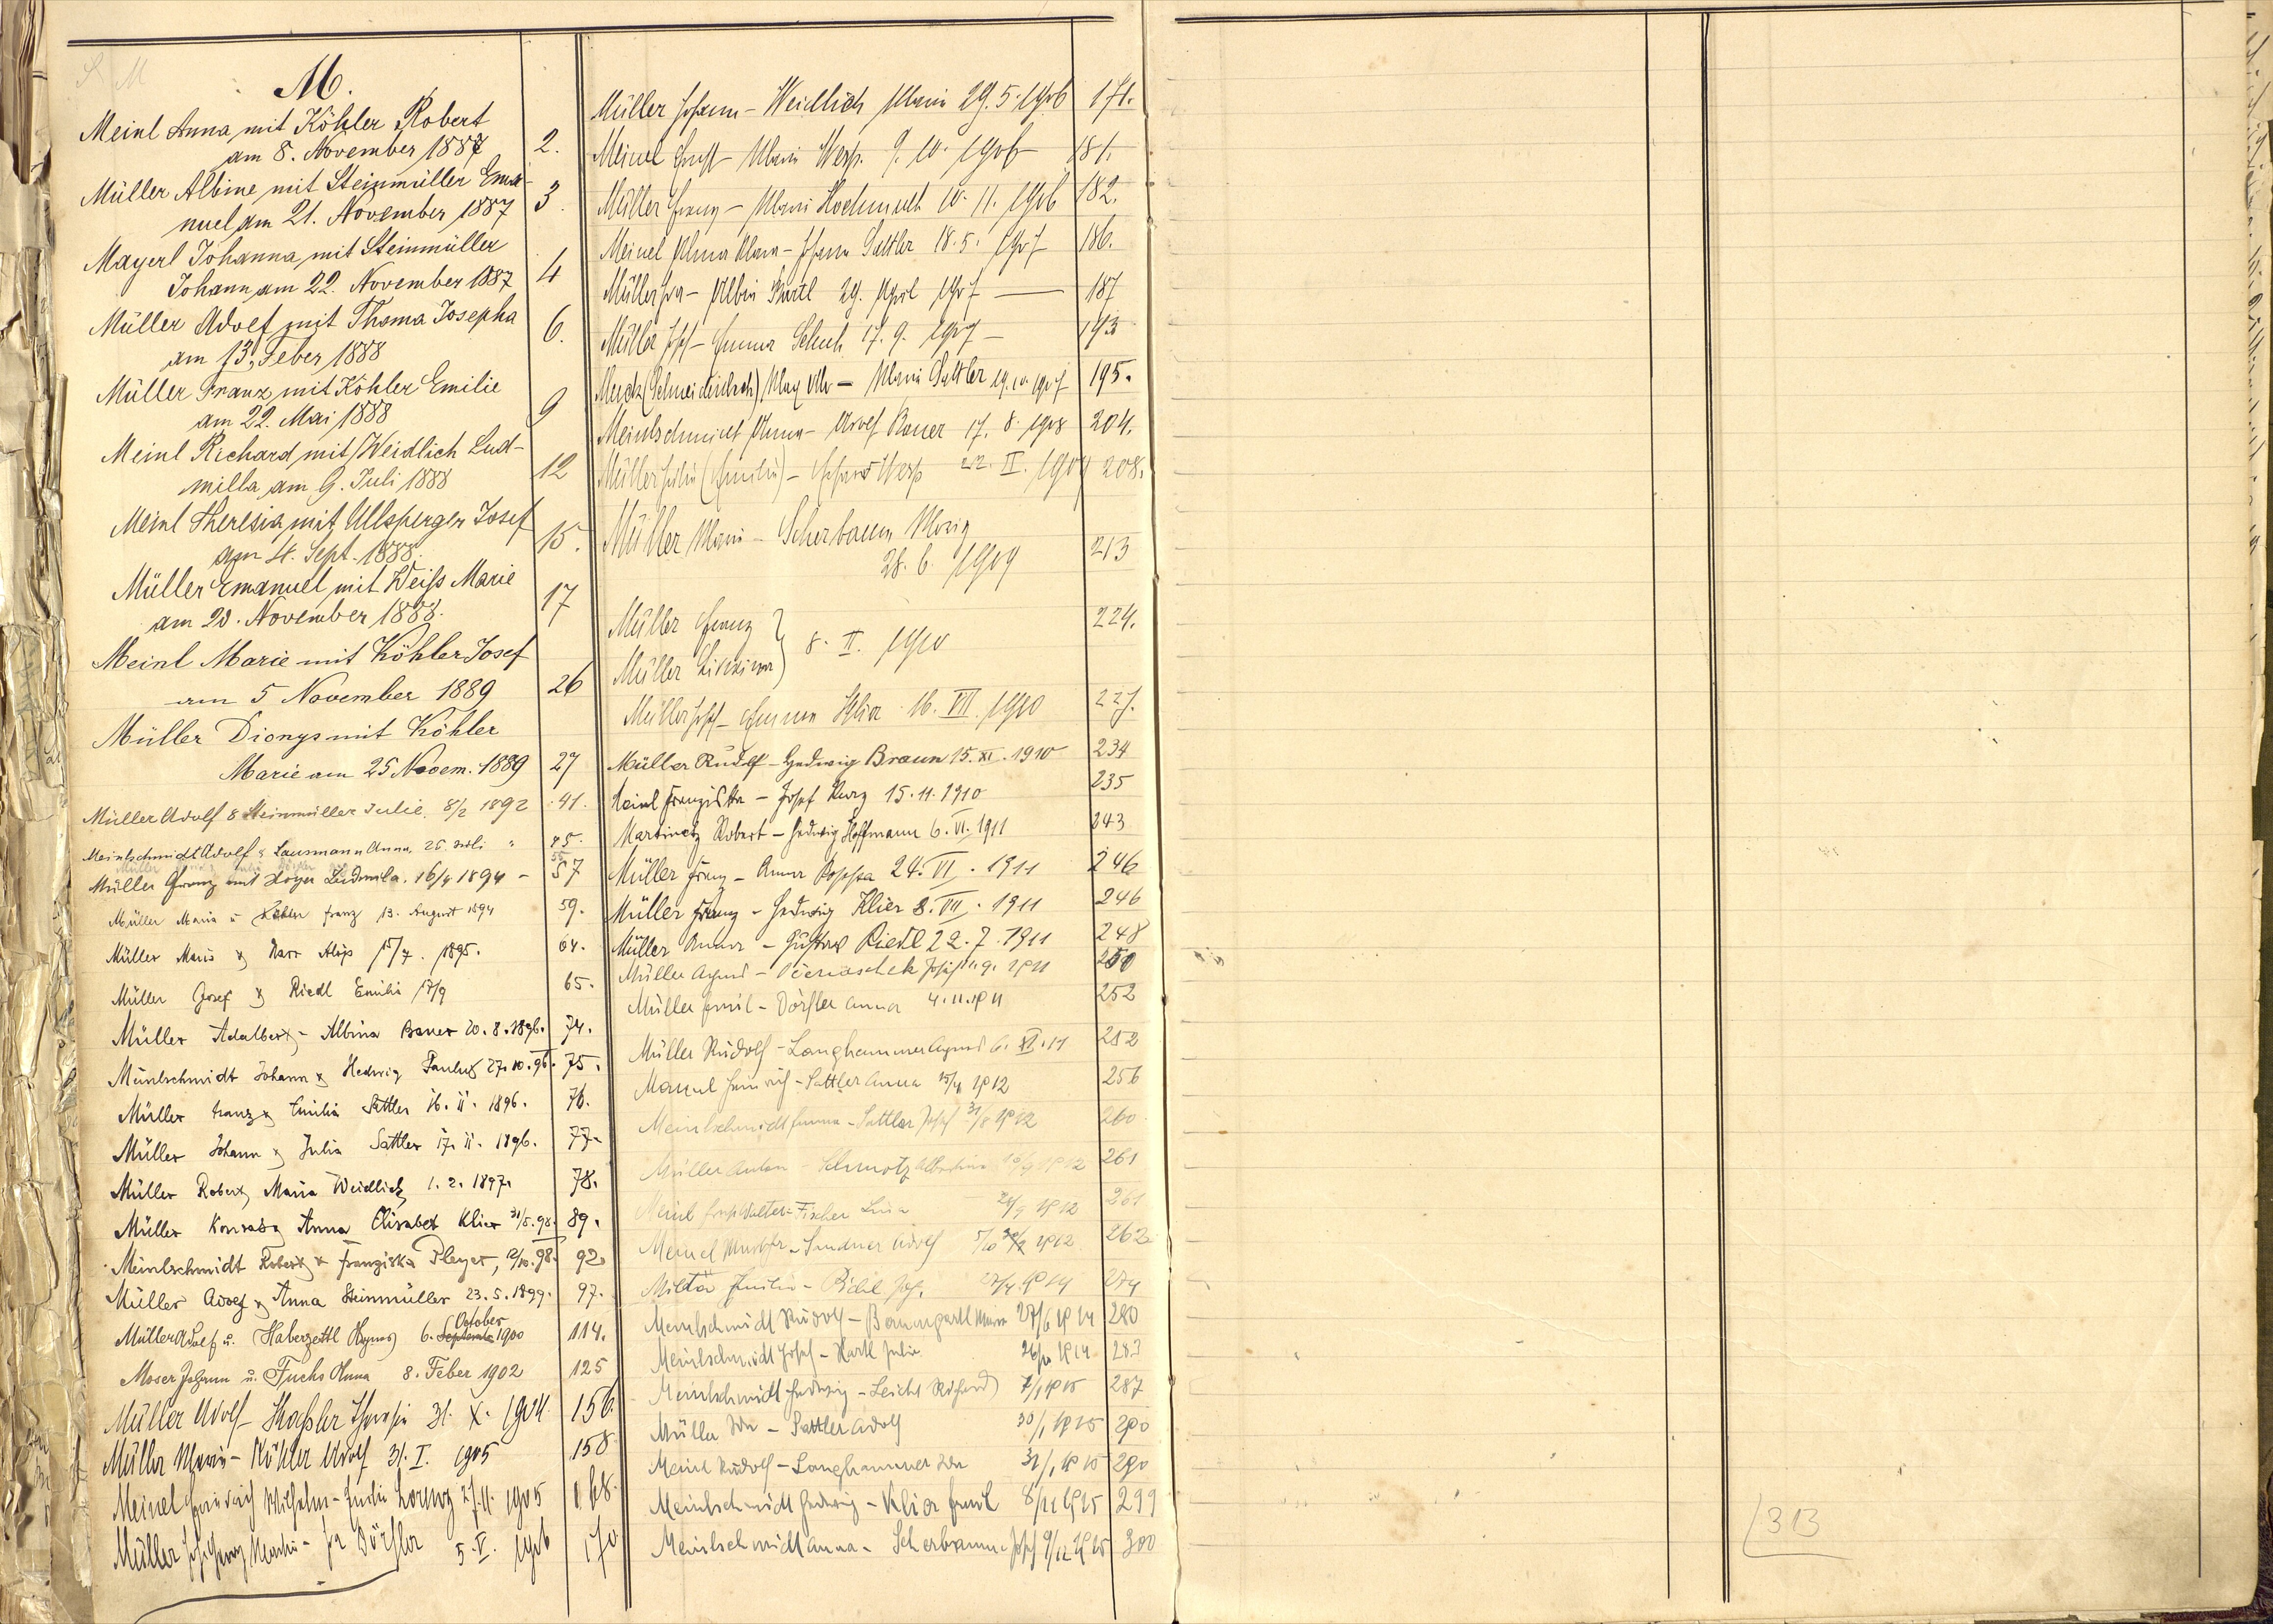 M.
Meinl Anna mit Köhler Robert
am 8. November 1887 2.
Müller Albine mit Steinmüller Ema-
nuel am 21. November 1887 3.
Mayerl Johanna mit Steinmüller
Johann am 22. November 1887 4
Müller Adolf mit Thoma Josepha 6.
am 13. Feber 1888
Müller Franz mit Köhler Emilie
am 22. Mai 1888 9
Meinl Richard mit Weidlich Lud-
milla am 9. Juli 1888 12
Meinl Theresia mit Ullsperger Josef
am 4. Sept. 1888. 15.
Müller Emanuel mit Weiss Marie
am 20. November 1888. 17
Meinl Marie mit Köhler Josef
am 5 November 1889 26
Müller Dionys mit Köhler
Marie am 25 Novem. 1889 27
Müller Adolf & Steinmüller Julie. 8/2 1892 41.
Meinlschmidt Adolf & Lausmann Anna, 26. Juli " 45.
Müller Franz mit Hoyer Ludmila. 16/4 1894 - 57
Müller Maria u Köhler Franz 13. August 1894 59.
Müller Maria & Karr Alois 15/7. 1895. 64.
Müller Josef & Riedl Emilia 17/9 65.
Müller Adalbert - Albina Bauer 20.8.1896. 74.
Meinlschmidt Johann & Hedwig Paulus 27.10.96. 75.
Müller Franz & Emilia Sattler 16. 11. 1896. 76.
Müller Johann & Julia Sattler 17. 11. 1896. 77.
Müller Robert, Maria Weidlich, 1. 2. 1897. 78.
Müller Konrad & Anna Elisabet Klier 31/5.98. 89.
Meinlschmidt Robert & Franziska Pleyer, 98. 92.
Müller Adolf & Anna Steinmüller 23.5.1899. 97.
October
Müller Adolf u. Haberzettl Agnes 6. September 1900 114.
Moser Johann u. Fuchs Anna 8. Feber 1902 125
Müller Adolf - Theresia 31. X. 1904 156.
Müller Marie - Köhler Adolf 31. I. 1905 158
Meinel Friedrich Wilhelm - Lorenz 27.11. 1905 168.
Müller - Dörfler 5. V. 1906 170
Müller Johann - Weidlich Maria 29. 5. 1906 171.
Meinel Ernst - Maria 9. 10. 1906 181.
Müller Franz - Maria Hochmuth 10. 11. 1906 182.
Meinel Johann Sattler 18. 5. 1907 186.
Müller - Albin 29. April 1907 187
Müller Josef - Emma Schuh 17. 9. 1907 - 193
Merck (Schneiderbach) Max - Maria Sattler 19. 10. 1907 195.
Meinlschmidt Anna - Adolf Bauer 17. 8. 1908 204.
Müller Julie (Emilie) - 22. II. 1909 208.
Müller Marie - Scherbaum
28. 6. 1909 213
Müller Franz 224.
Müller 8. II. 1910
Müller Josef - Emma Klier 16. VII. 1910 227.
Müller Rudolf - Hedwig Braun 15. XI. 1910 234
Meinl Franziska - Josef Kurz 15. 11. 1910 235
Martinetz Robert - Hedwig Hoffmann 6. VI. 1911 243
Müller Franz - Anna Poppa 24. VI. 1911 246
Müller Franz - Hedwig Klier 8. VII. 1911 246
Müller Anna - Gustav Riedl 22. 7. 1911 248
Müller Agnes - Josef 9. 1911 250
Müller Emil - Dörfler Anna 4. 11. 1911 252
Müller Rudolf - Langhammer Agnes 6. XI. 11 252
Heinrich - Sattler Anna 15/4 1912 256
Meinlschmidt Emma - Sattler Josef 31/8 1912 260
Müller Anton - Schmotz Albertina 1912 261
Meinl Walter - Fischer Luia 1912 261
Meinel - Lindner Adolf 1912 262
Emilie - Pichl Jos. 27/4 1914 274
Meinlschmidt Rudolf - Baumgartl Maria 27/6 1914 280
Meinlschmidt Josef - Hartl Julie 26/10 1914 283
Meinlschmidt Hedwig - Leicht Richard 7/1 1915 287
Müller Ida - Sattler Adolf 30/1 1915 290
Meinl Rudolf - Langhammer Ida 31/1 1915 290
Meinlschmidt Hedwig - Klier Emil 8/11 1915 299
Meinlschmidt Anna - Scherbaum Josef 9/12 1915 300
313